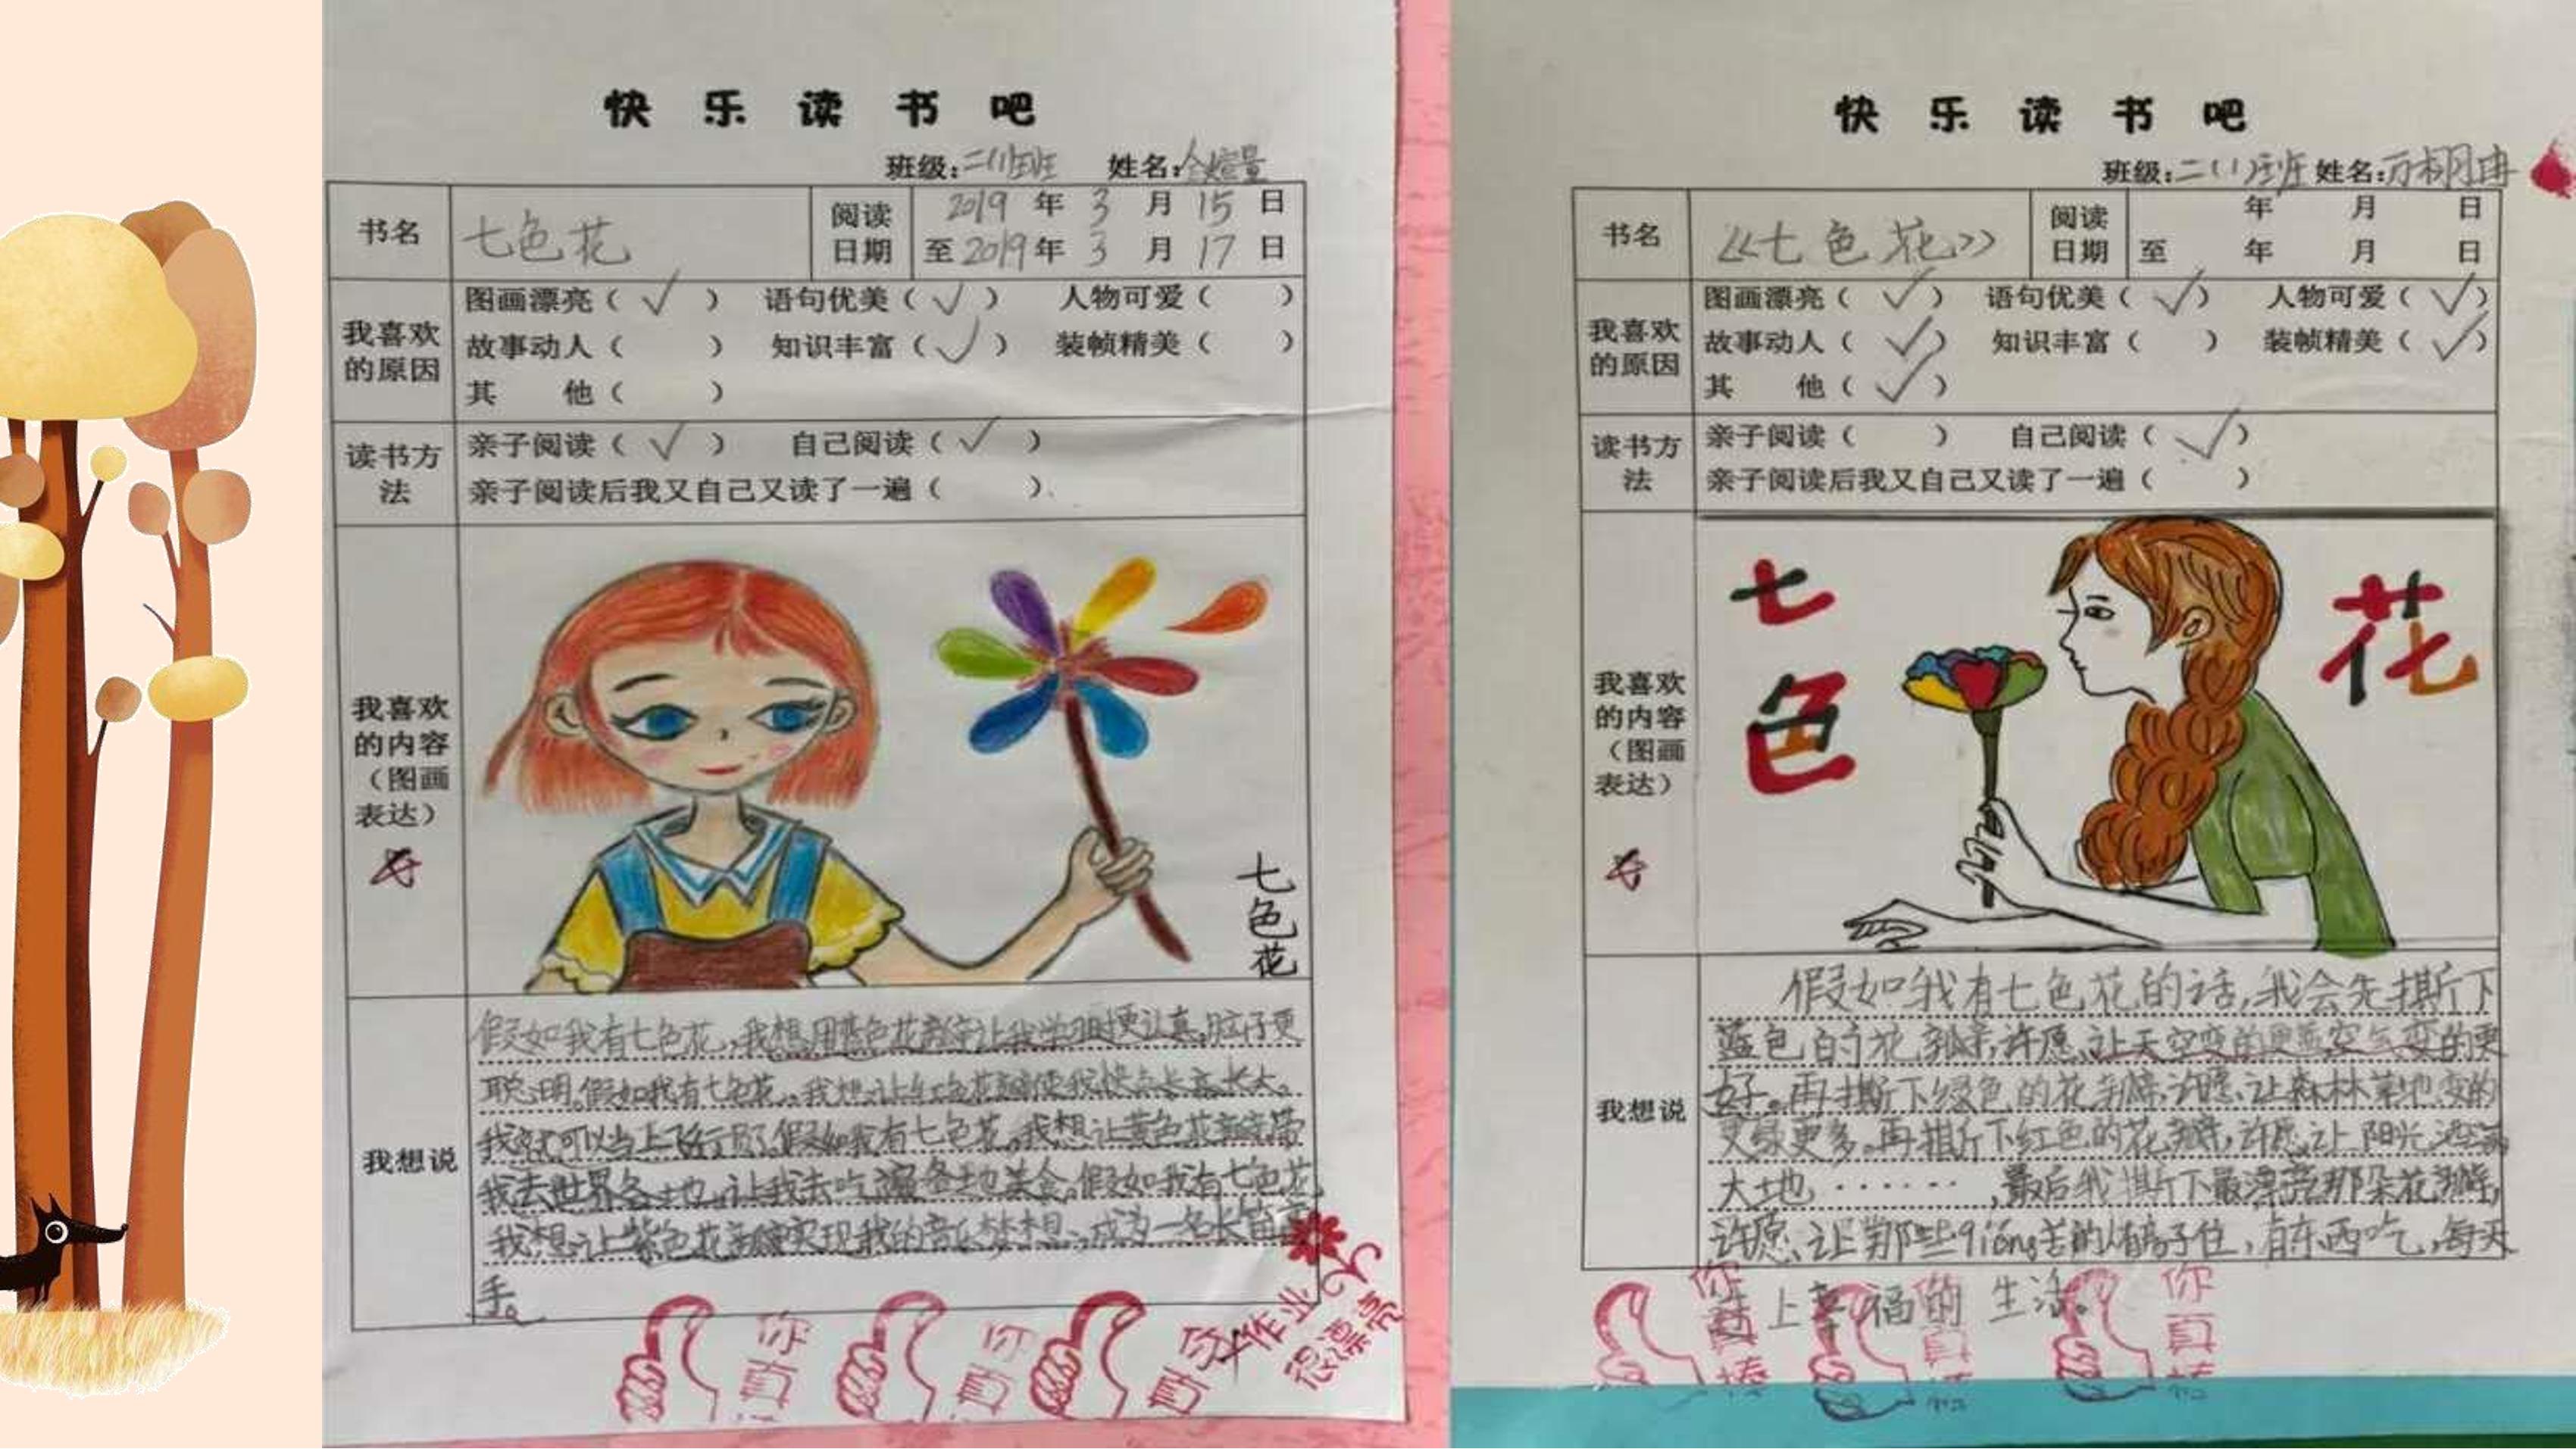 快乐读书吧
班级:二(1)班 姓名:
书名 七色花 阅读日期 2019年3月15日
至2019年3月17日
我喜欢的原因
图画漂亮(√) 语句优美(√) 人物可爱( )
故事动人( ) 知识丰富(√) 装帧精美( )
其 他( )
读书方法
亲子阅读(√) 自己阅读(√)
亲子阅读后我又自己又读了一遍( ).
我喜欢的内容(图画表达)
七色花
我想说
假如我有七色花,我想用蓝色花瓣让我学习更认真,脑子更
聪明。假如我有七色花,我想让红色花瓣使我快点长高长大。
我就可以当上飞行员了。假如我有七色花,我想让黄色花瓣带
我去世界各地,让我去吃遍各地美食。假如我有七色花
我想让紫色花瓣实现我的音乐梦想,成为一名长笛
手。
你真
你真
你真
作业很漂亮
快乐读书吧
班级:二(1)班 姓名:
书名 《七色花》 阅读日期 年 月 日
至 年 月 日
我喜欢的原因
图画漂亮(√) 语句优美(√) 人物可爱(√)
故事动人(√) 知识丰富( ) 装帧精美(√)
其 他(√)
读书方法
亲子阅读( ) 自己阅读(√)
亲子阅读后我又自己又读了一遍( )
我喜欢的内容(图画表达)
七色花
我想说
假如我有七色花的话,我会先撕下
蓝色的花瓣,许愿,让天空变的更蓝,空气变的更
好。再撕下绿色的花瓣,许愿,让森林草地变的
更绿更多。再撕下红色的花瓣,许愿,让阳光洒满
大地······,最后我撕下最漂亮那朵花瓣,
许愿、让那些qióng苦的人有房子住,有东西吃,每天
过上幸福的生活。
你真棒
你真
你真